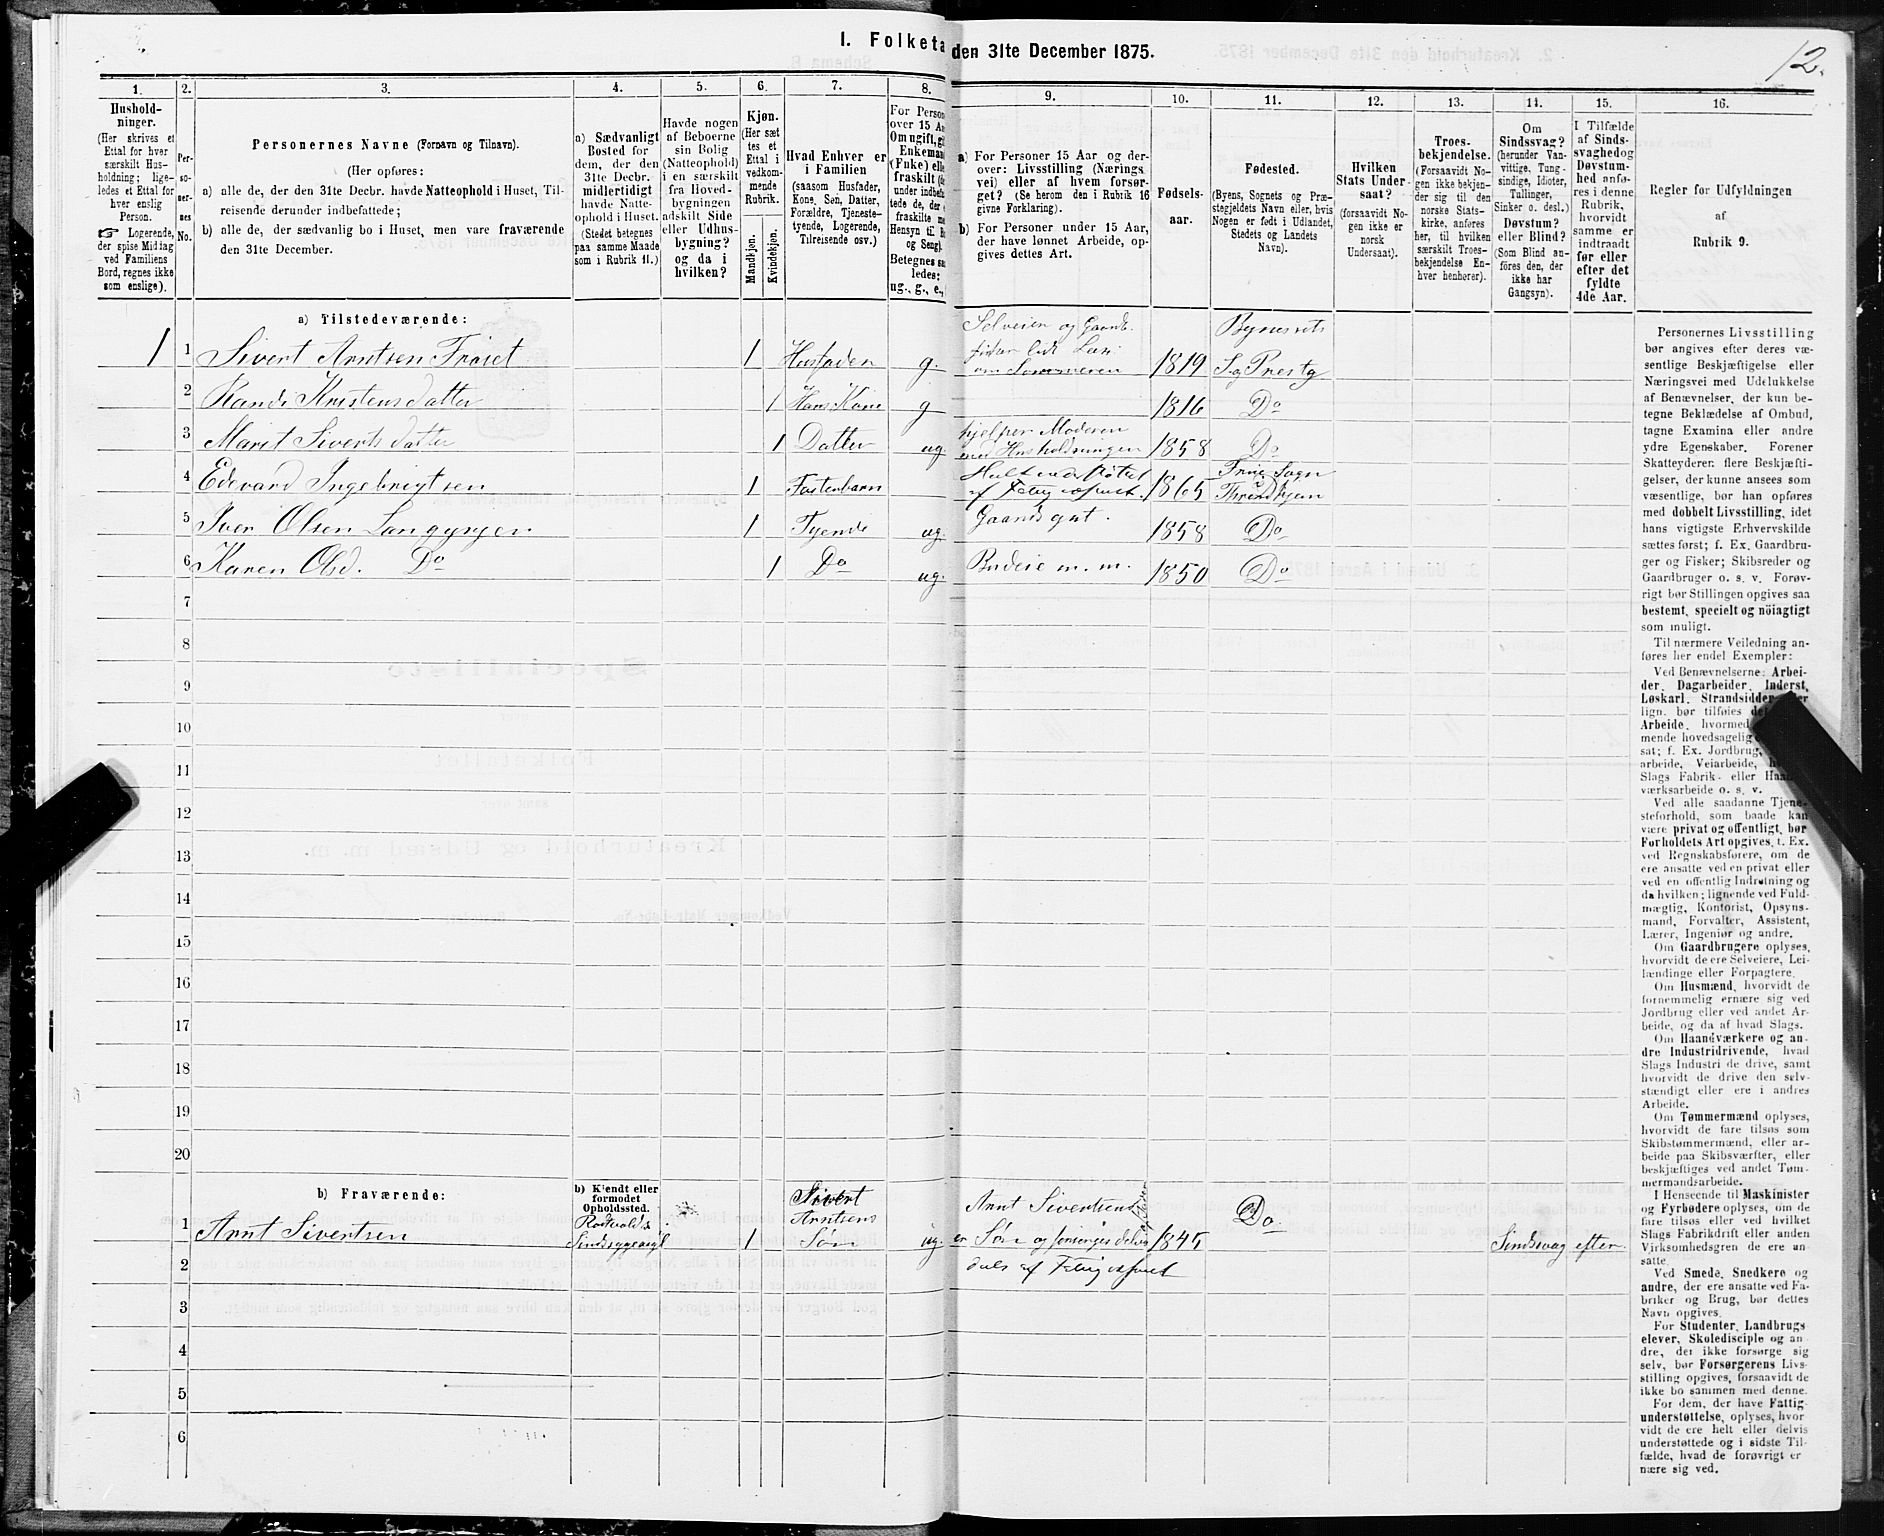 I. Folketa den 31te December 1875.
12.
1. 2. 3. 4. 5. 6. 7. 8. 9. 10. 11. 12. 13. 14. 15. 16.
Hushold-
ninger.
(Her skrives et
Ettal for hver
særskilt Hus-
holdning; lige-
ledes et Ettal for
hver enslig
Person.
☞ Logerende,
der spise Middag
ved Familiens
Bord, regnes ikke
som enslige).
Per-
so-
ner-
nes
No.
Personernes Navne (Fornavn og Tilnavn).
(Her opføres:
a) alle de, der den 31te Decbr. havde Natteophold i Huset, Til-
reisende derunder indbefattede;
b) alle de, der sædvanlig bo i Huset, men vare fraværende
den 31te December.
a) Sædvanligt
Bosted for
dem, der den
31te Decbr.
midlertidigt
havde Natte-
ophold i Huset.
(Stedet betegnes
paa samme Maade
som i Rubrik 11.)
Havde nogen
af Beboerne
sin Bolig
(Natteophold)
i en særskilt
fra Hoved-
bygningen
adskilt Side
eller Udhus-
bygning?
og da i
hvilken?
Kjøn.
(Her sæt
tes et
Ettal i
vedkom-
mende
Rubrik.
Mandkjøn.
Kvindekjøn.
Hvad Enhver er
i Familien
(saasom Husfader,
Kone, Søn, Datter,
Forældre, Tjeneste-
tyende, Logerende,
Tilreisende osv.)
For Person
over 15 Aa
Om ugift, gi
Enkeman
(Fuke) elle
fraskilt (d
under indbefa
tede de, der e
fraskilte m
Hensyn til B
og Seng).
Betegnes saa
ledes:
ug., g., e.,
a) For Personer 15 Aar og der-
over: Livsstilling (Nærings
vei) eller af hvem forsør-
get? (Se herom den i Rubrik 16
givne Forklaring).
b) For Personer under 15 Aar,
der have lønnet Arbeide, op-
gives dettes Art.
Fødsels-
aar.
Fødested.
(Byens, Sognets og Præ-
stegjeldets Navn eller, hvis
Nogen er født i Udlandet,
Stedets og Landets
Navn).
Hvilken
Stats Under-
saat?
(forsaavidt No-
gen ikke er
norsk
Undersaat).
Troes-
bekjendelse.
(Forsaavidt No-
gen ikke bekjen-
der sig til den
norske Stats-
kirke, anføres
her, til hvilken
særskilt Troes-
bekjendelse En-
hver henhører).
Om
Sindssvag?
(herunder Van-
vittige, Tung-
sindige, Idioter,
Tullinger,
Sinker o. desl.)
Døvstum?
eller Blind?
(Som Blind an-
föres den, der
ikke har
Gangsyn).
I Tilfælde
af Sinds-
svaghed og
Døvstum-
hed anfø-
res i denne
Rubrik,
hvorvidt
samme er
indtraadt
før eller
efter det
fyldte
4de Aar.
Regler for Udfyldningen
af
Rubrik 9.
a) Tilstedeværende:
1 1 Sivert Arntsen Frøset 1 Husfader g. Selveier og Gaardb. 1819 Bynessets
S. og Prestg
2 Randi Kristensdatter 1 Hans Kone g 1816 Do
3 Marit Sivertsdatter 1 Datter ug. hjelper Moderen
med Husholdningen 1858 Do
4 Edevard Ingebrigtsen 1 Fosterbarn 1865 Frue Sogn
Throndhjem
5 Iver Olsen Langørjen 1 Tyende ug. Gaardsgut. 1858 Do
6 Karen Olsd. Do 1 Do ug. Budeie m. m. 1850 Do
7
8
9
10
11
12
13
14
15
16
17
18
19
20
b) Fraværende:
b) Kjendt eller
formodet
Opholdssted.
1 Arnt Sivertsen Rotvolds
Sindssygeasyl 1 Sivert
Arntsens
Søn ug. Arnt Sivertsen
er Søn og forsørges delvis 1845 Do Sindsvag efter
2 dels af Fattigvæsnet
3
4
5
6
Personernes Livsstilling
bør angives efter deres væ-
sentlige Beskjæftigelse eller
Næringsvei med Udelukkelse
af Benævnelser, der kun be-
tegne Beklædelse af Ombud,
tagne Examina eller andre
ydre Egenskaber. Forener
Skatteyderen flere Beskjæfti-
gelser, der kunne ansees som
væsentlige, bør han opføres
med dobbelt Livsstilling, idet
hans vigtigste Erhvervskilde
sættes først; f. Ex. Gaardbru-
ger og Fisker; Skibsreder og
Gaardbruger o. s. v. Forøv-
rigt bør Stillingen opgives saa
bestemt, specielt og nöiagtigt
som muligt.
Til nærmere Veiledning an-
føres her endel Exempler:
Ved Benævnelserne: Arbei-
der, Dagarbeider, Inderst,
Løskarl, Strandsidder
lign. bør tilføies
Arbeide, hvormed
mende hovedsagelig
sat; f. Ex. Jordbrug,
arbeide, Veiarbeide,
Slags Fabrik- eller
værksarbeide o. s. v.
Ved alle saadanne Tjene-
steforhold, som baade kan
være privat og offentligt, bør
Forholdets Art opgives, t. Ex.
ved Regnskabsførere, om de
ere ansatte ved en privat eller
ved en offentlig Indretning og
da hvilken; lignende ved Fuld-
mægtig, Kontorist, Opsyns-
mand, Forvalter, Assistent,
Lærer, Ingeniør og andre.
Om Gaardbrugere oplyses,
hvorvidt de ere Selveiere, Lei-
lændinge eller Forpagtere.
Om Husmænd, hvorvidt de
fornemmelig ernære sig ved
Jordbrug eller ved andet Ar-
beide, og da af hvad Slags.
Om Haandværkere og an-
dre Industridrivende, hvad
Slags Industri de drive, samt
hvorvidt de drive den selv-
stændigt eller ere i andres
Arbeide.
Om Tømmermænd oplyses,
hvorvidt de fare tilsøs som
Skibstømmermænd, eller ar-
beide paa Skibsværfter, eller
beskjæftiges ved andet Tøm-
mermandsarbeide.
I Henseende til Maskinister
og Fyrbødere oplyses, om de
fare tilsøs eller ved hvilket
Slags Fabrikdrift eller anden
Virksomhedsgren de ere an-
satte.
Ved Smede, Snedkere og
andre, der ere ansatte ved Fa-
briker og Brug, bør dettes
Navn opgives.
For Studenter, Landbrugs
elever, Skoledisciple og an
dre, der ikke forsørge sig
selv, bør Forsørgerens Livs-
stilling opgives, forsaavidt de
ikke bo sammen med denne.
For dem, der have Fattig-
understøttelse, oplyses, hvor
vidt de ere helt eller delvis
understøttede og i sidste Til-
fælde, hvad de forøvrigt er
nære sig ved.